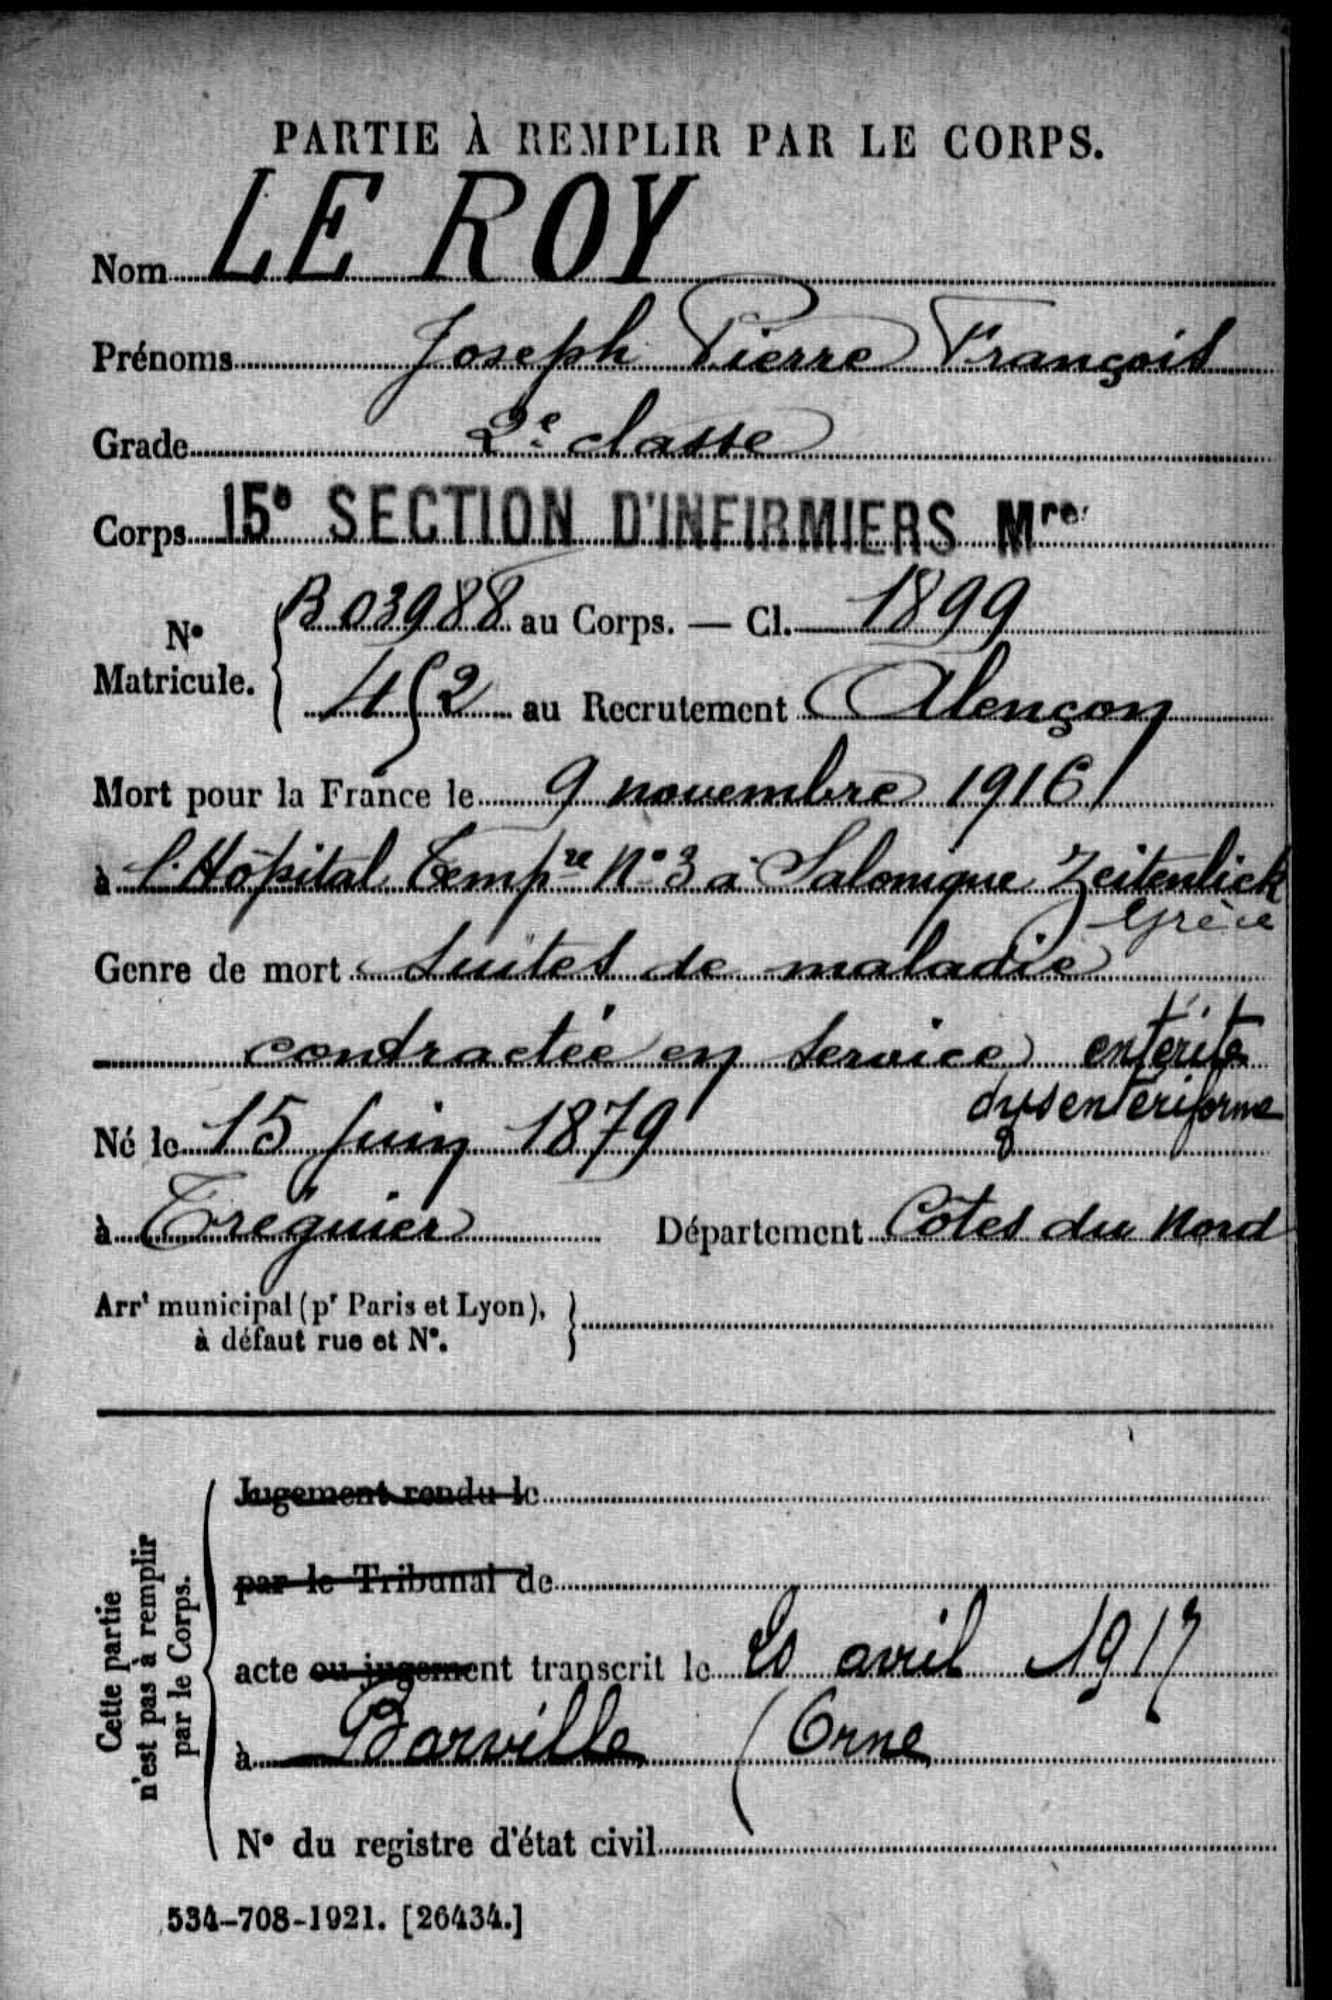 PARTIE À REMPLIR PAR LE CORPS.
Nom LE ROY
Prénoms Joseph Pierre François
Grade 2e classe
Corps 15e SECTION D'INFIRMIERS Mres
No Matricule. B 03988 au Corps. — Cl. 1899
452 au Recrutement Alençon
Mort pour la France le 9 novembre 1916
à l'Hôpital Tempre No 3 à Salonique Zeitenlick
Grèce
Genre de mort Suites de maladie
contractée en service entérite
dysentériforme
Né le 15 juin 1879
à Tréguier Département Côtes du Nord
Arrt municipal (pr Paris et Lyon),
à défaut rue et No.
Cette partie
n'est pas à remplir
par le Corps.
Jugement rendu le
par le Tribunal de
acte ou jugement transcrit le 20 avril 1917
à Barville (Orne
No du registre d'état civil
534-708-1921. [26434.]